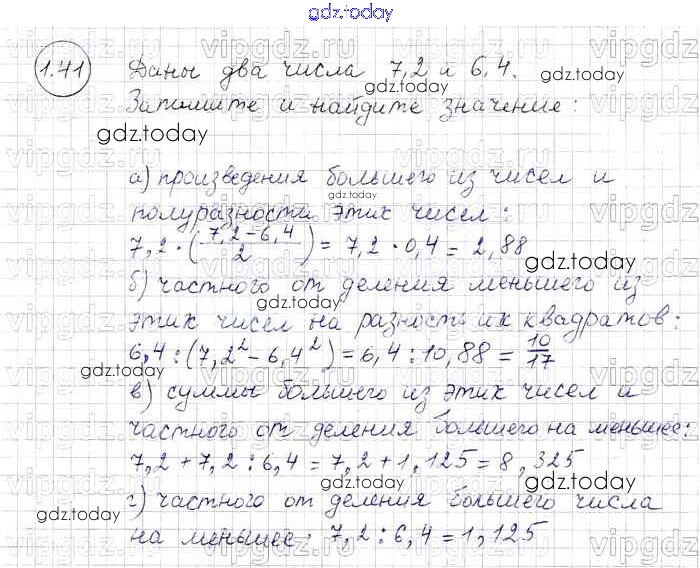 gdz.today
1.41 Даны два числа 7,2 и 6,4.
gdz.today
Запишите и найдите значение:
gdz.today
gdz.today
а) произведения большего из чисел и
gdz.today
полуразности этих чисел:
7,2 · (7,2-6,4/2) = 7,2 · 0,4 = 2,88
gdz.today
б) частного от деления меньшего из
gdz.today
этих чисел на разность их квадратов:
6,4 : (7,2² - 6,4²) = 6,4 : 10,88 = 10/17
gdz.today
gdz.today
в) суммы большего из этих чисел и
gdz.today
частного от деления большего на меньшее:
7,2 + 7,2 : 6,4 = 7,2 + 1,125 = 8,325
gdz.today
г) частного от деления большего числа
gdz.today
gdz.today
на меньшее: 7,2 : 6,4 = 1,125
gdz.today
vipgdz.ru